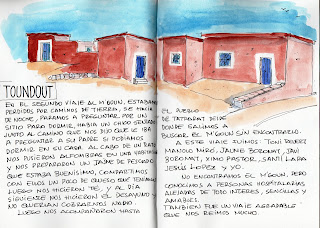 TOUNDOUT
EN EL SEGUNDO VIAJE AL M'GOUN, ESTABAMOS
PERDIDOS POR CAMINOS DE TIERRA, SE HACIA
DE NOCHE, PARAMOS A PREGUNTAR, POR UN
SITIO PARA DORMIR, HABIA UN CHICO SENTADO
JUNTO AL CAMINO QUE NOS DIJO QUE LE IBA
A PREGUNTAR A SU PADRE SI PODIAMOS
DORMIR EN SU CASA. AL CABO DE UN RATO
NOS PUSIERON ALFOMBRAS EN UNA
Y NOS PREPARARON UN TAJINE DE PESCADO
QUE ESTABA BUENISIMO, COMPARTIMOS
CON ELLOS UN POCO DE QUESO QUE TENIAMOS
LUEGO NOS HICIERON TE, Y AL DIA
SIGUIENTE NOS HICIERON EL DESAYUNO Y
NO QUERIAN COBRARNOS NADA.
LUEGO NOS ACOMPAÑARON HASTA
EL PUEBLO
DE TATGRAT DESDE
DONDE SALIMOS A
BUSCAR EL M'GOUN SIN ENCONTRARLO.
A ESTE VIAJE FUIMOS: TONI PEREZ
MANOLO MIRÓ, JAUME BORONAT, JAVI
BORONAT, XIMO PASTOR, SANTI LARA
JESUS LOPEZ Y YO.
NO ENCONTRAMOS EL M'GOUN, PERO
CONOCIMOS A PERSONAS HOSPITALARIAS
ALEJADAS DE TODO INTERES, SENCILLAS Y
AMABLES.
TAMBIEN FUE UN VIAJE AGRADABLE
QUE NOS REIMOS MUCHO.